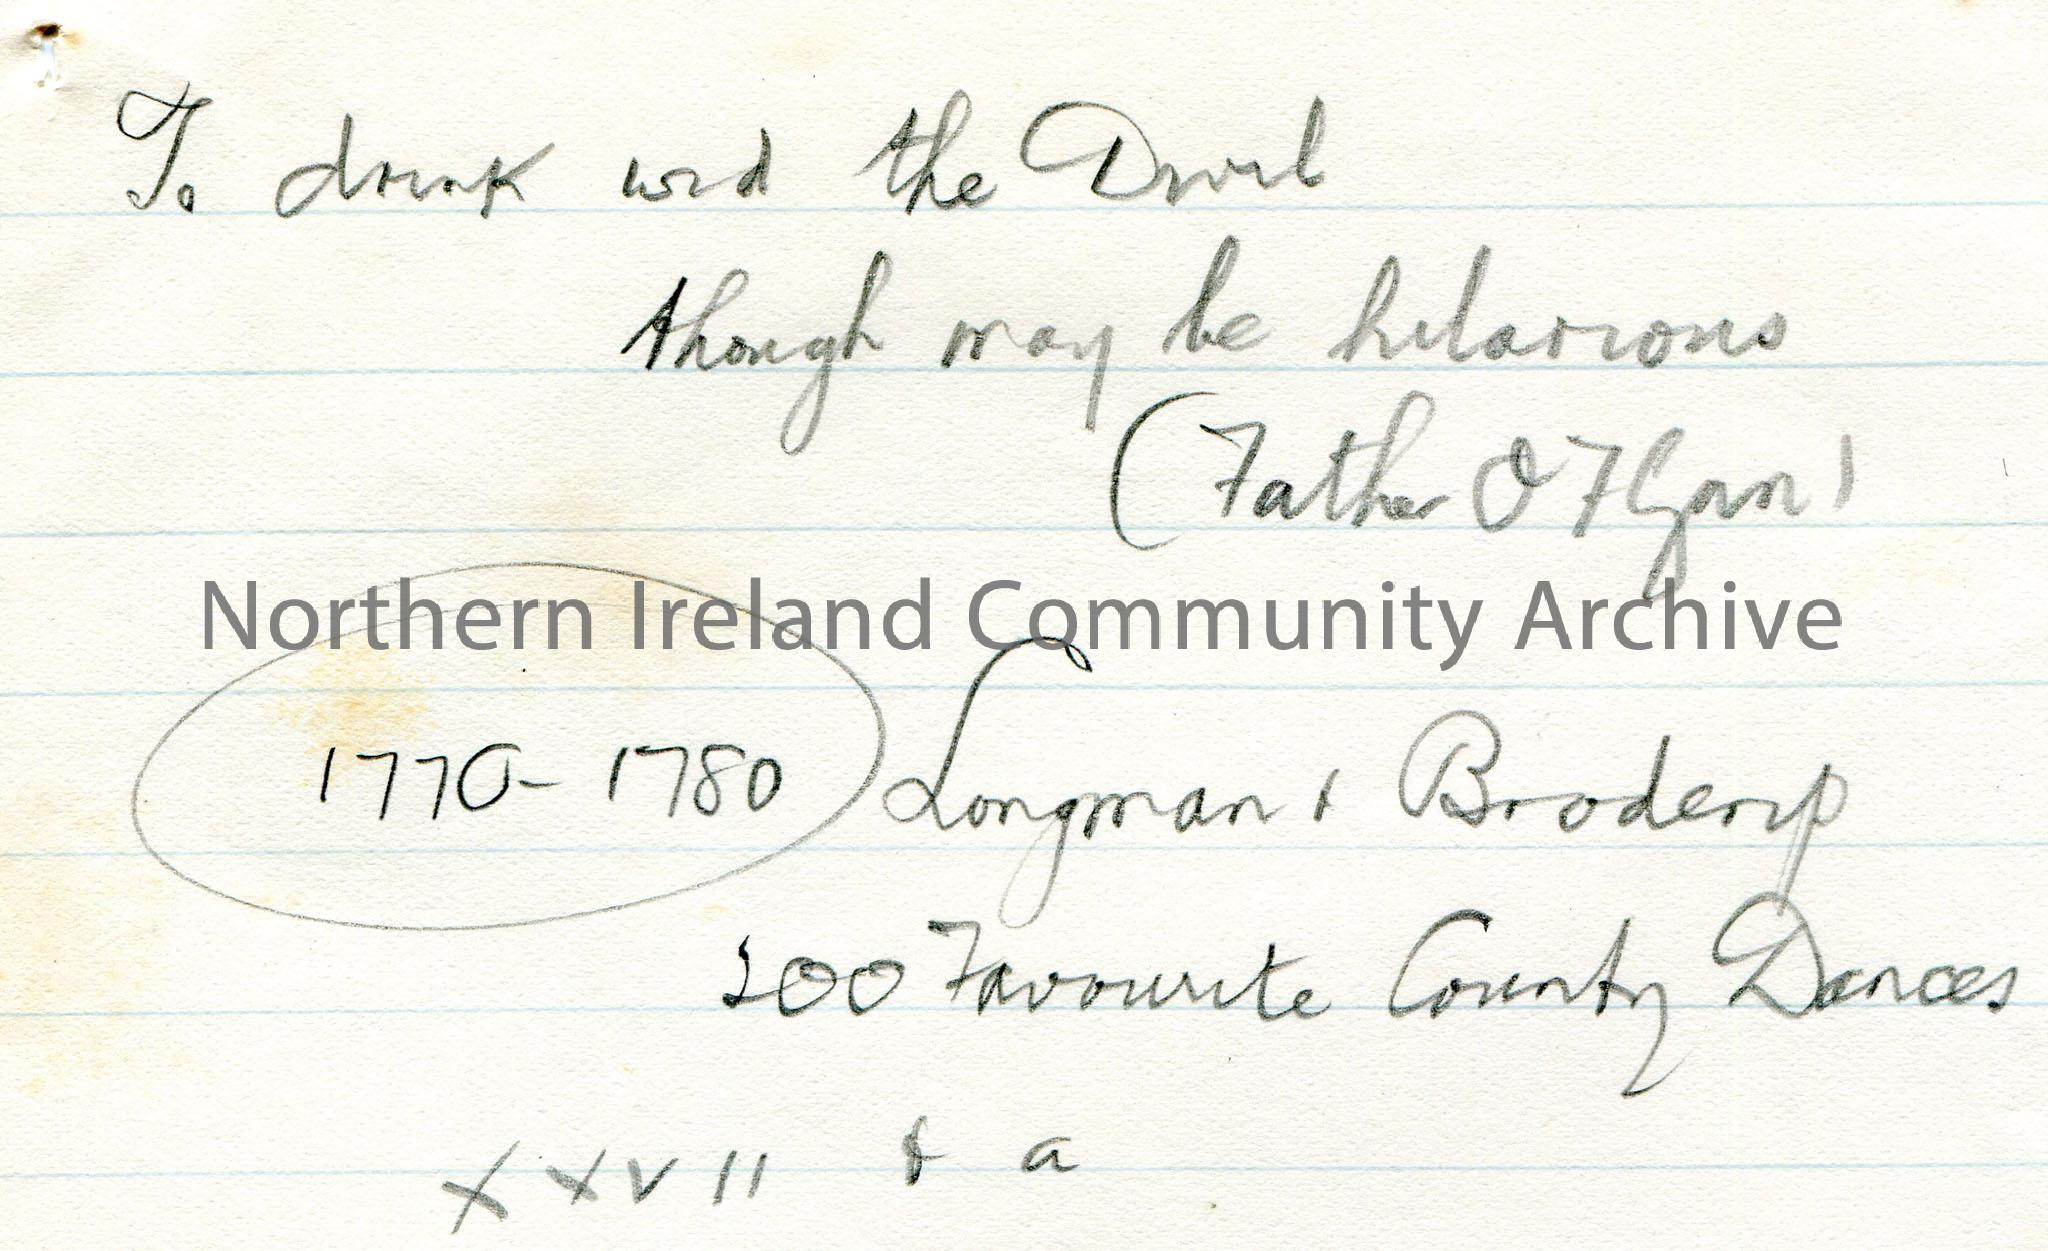 To drink wid the Divil
though may be hilarious
(Father O Flynn)
Northern Ireland Community Archive
1770-1780 Longman & Broderip
200 Favourite County Dances
XXVII & a